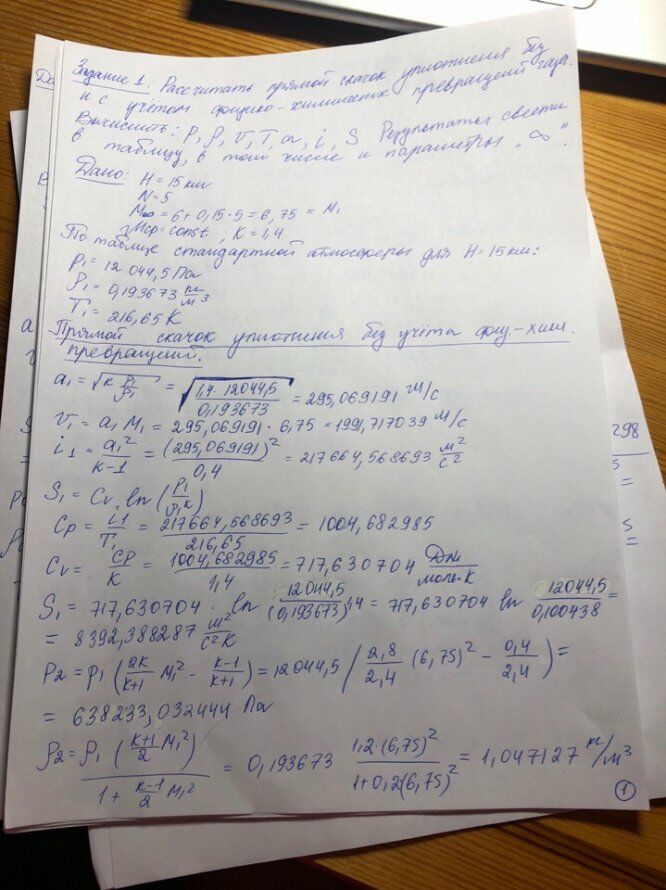 Задание 1: Рассчитать прямой скачок уплотнения без
и с учётом физико-химических превращений газа.
Вычислить: P, ρ, V, T, a, i, S Результаты свести
в таблицу, в том числе и параметры „∞".
Дано: H = 15 км
N = 5
M∞ = 6 + 0,15 · 5 = 6,75 = M₁
= const ; K = 1,4
По таблице стандартной атмосферы для H = 15 км:
P₁ = 12 044,5 Па
ρ₁ = 0,193673 кг/м³
T₁ = 216,65 K
Прямой скачок уплотнения без учёта физ-хим.
превращений.
a₁ = √(K P₁/ρ₁) = √(1,4 · 12044,5 / 0,193673) = 295,069191 м/с
V₁ = a₁ M₁ = 295,069191 · 6,75 = 1991,717039 м/с
i₁ = a₁²/(K-1) = (295,069191)²/0,4 = 217664,568693 м²/с²
S₁ = Cv · ln (P₁/ρ₁ᴷ)
Cp = i₁/T₁ = 217664,568693/216,65 = 1004,682985
Cv = Cp/K = 1004,682985/1,4 = 717,630704 Дж/моль·К
S₁ = 717,630704 · ln 12044,5/(0,193673)^1,4 = 717,630704 ln 12044,5/0,100438 =
= 8392,388287 м²/с²К
P₂ = P₁ (2K/(K+1) M₁² - (K-1)/(K+1)) = 12044,5 (2,8/2,4 (6,75)² - 0,4/2,4) =
= 638233,032444 Па
ρ₂ = ρ₁ ((K+1)/2 M₁²) / (1 + (K-1)/2 M₁²) = 0,193673 1,2·(6,75)²/(1+0,2(6,75)²) = 1,047127 кг/м³
1
298